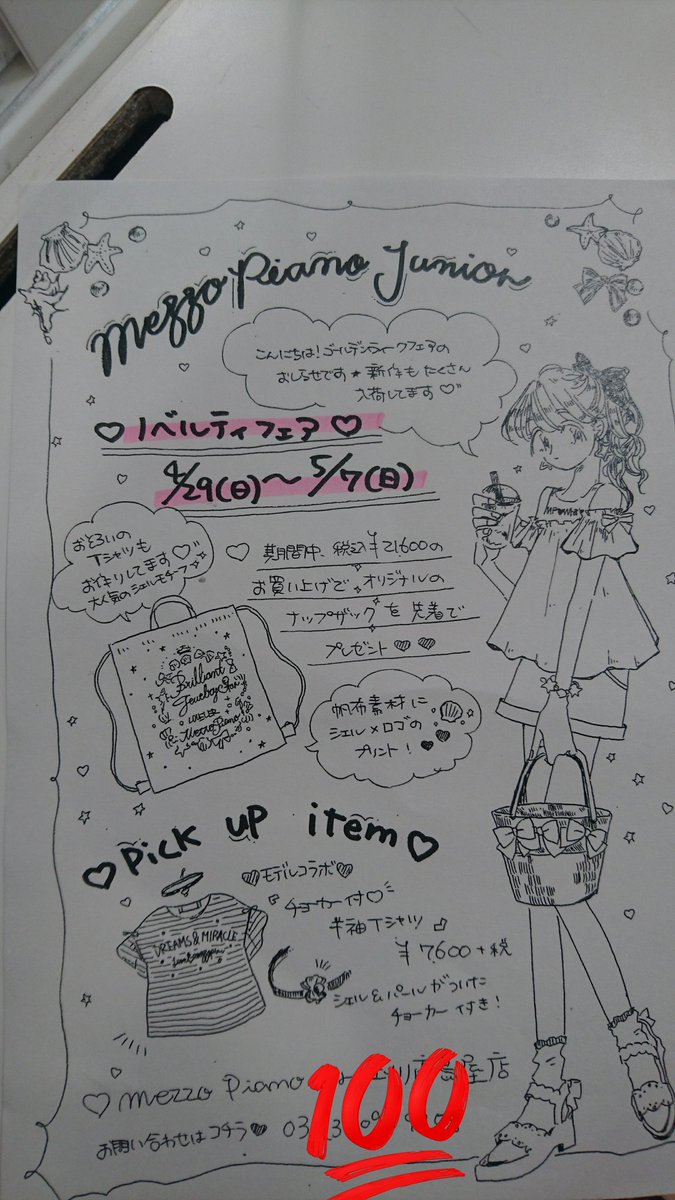 mezzo Piano Junior
こんにちは!ゴールデンウィークフェアの
おしらせです★新作もたくさん
入荷してます♡
♡ノベルティフェア♡
4/29(日)〜5/7(日)
おそろいの
Tシャツも
お作りしてます♡
大人気のシェルモチーフ
♡ 期間中、税込¥21600の
お買い上げで、オリジナルの
ナップザックを先着で
プレゼント♡♡
Brilliant
Jewelry
ATELIER
Mezzo Piano
帆布素材に
シェル×ロゴの
プリント!
♡Pick up item♡
♡モデルコラボ♡
チョーカー付♡
半袖Tシャツ♪
¥7600+税
DREAMS & MIRACLE
シェル&パールがついた
チョーカー付き!
♡ mezzo Piano 屋店
お問い合わせはコチラ♥ 03
100